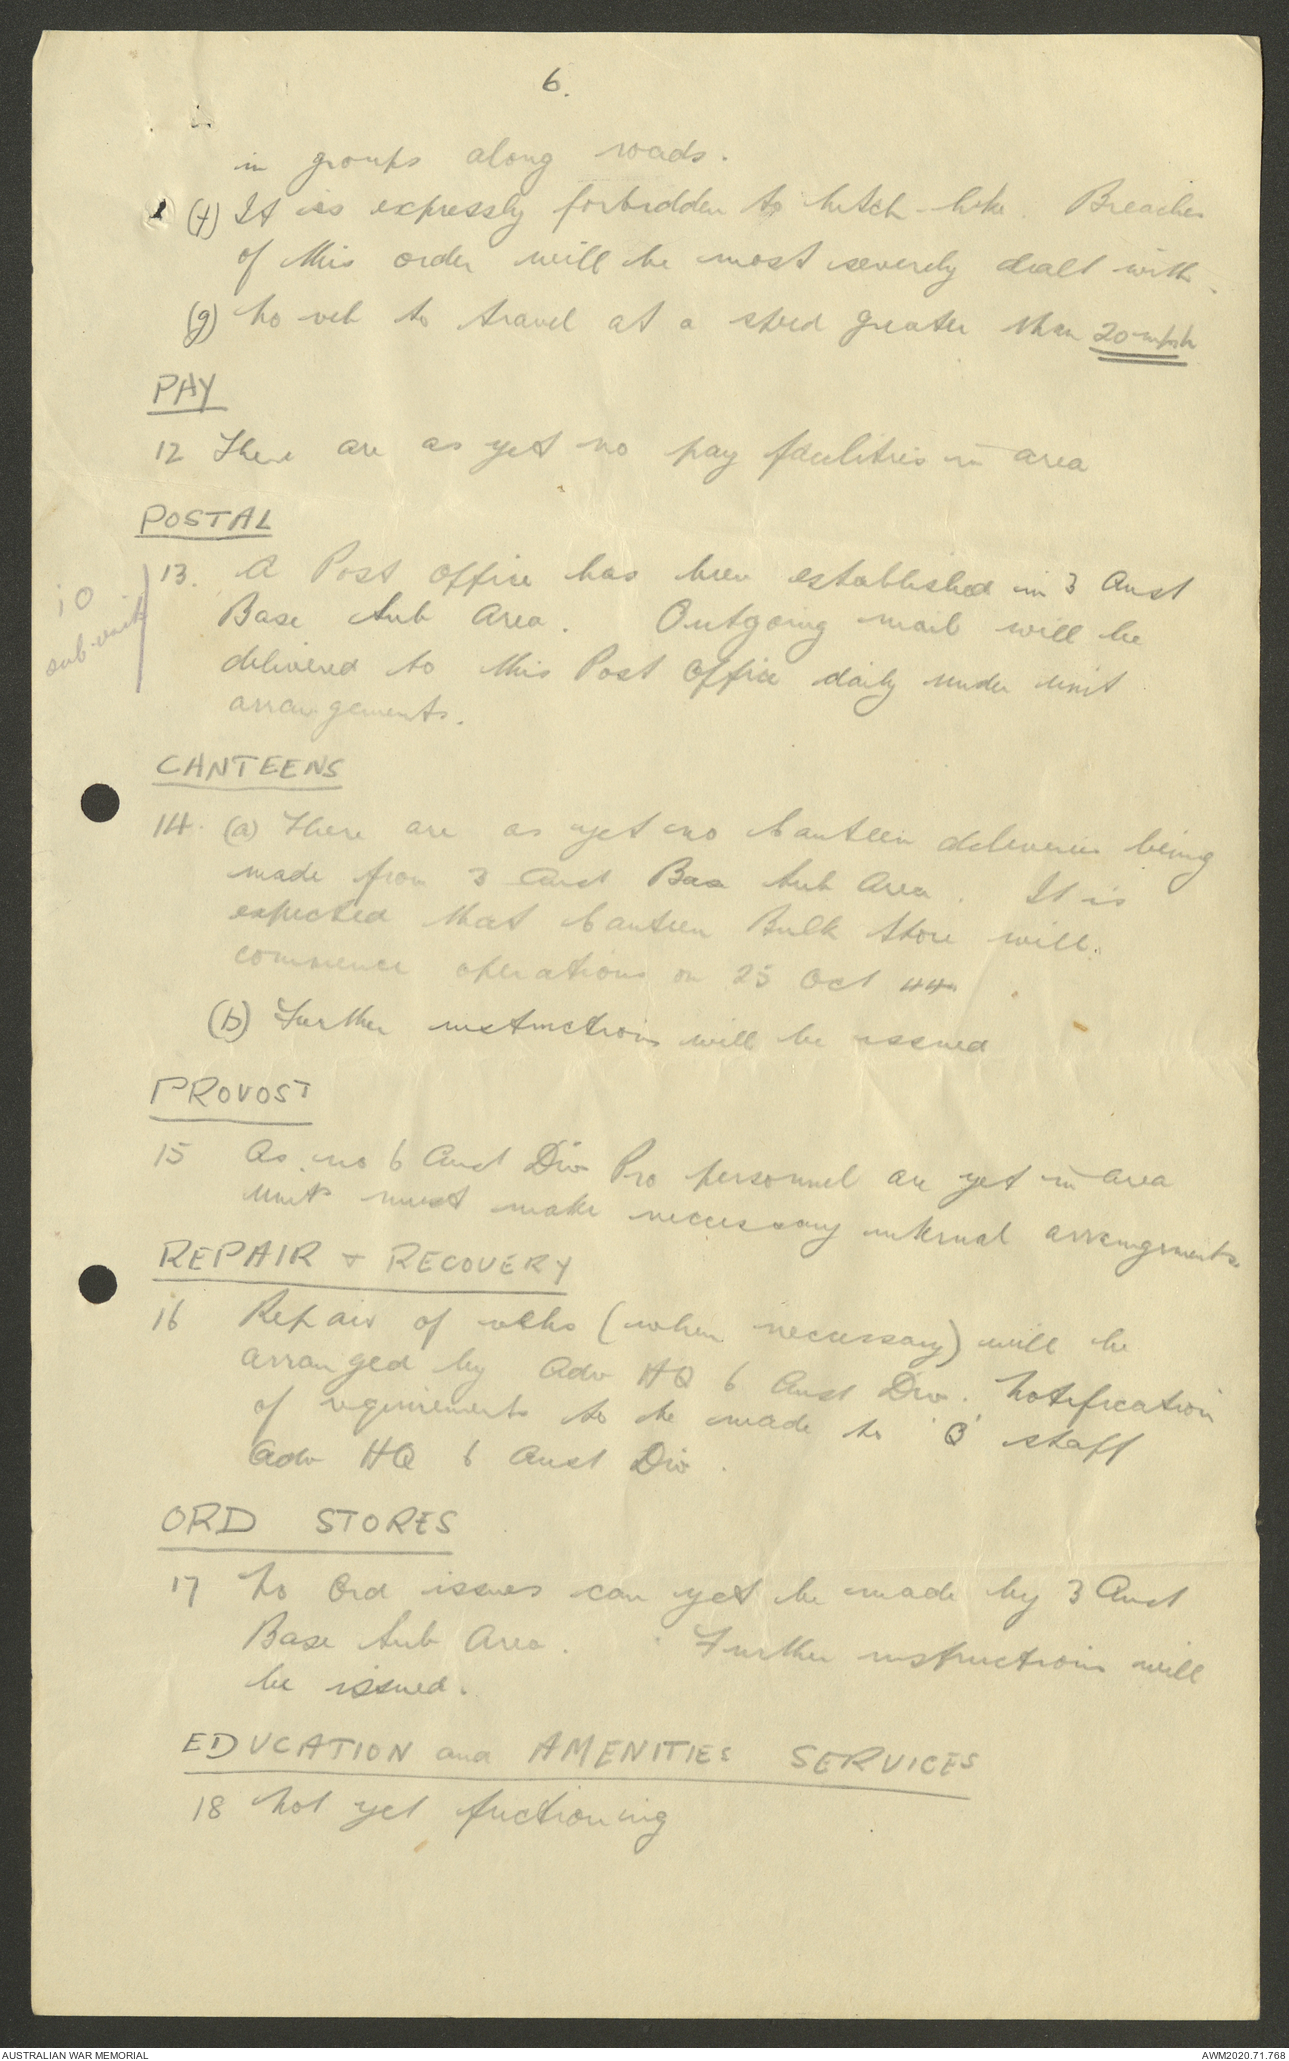 6.
in groups along roads.
(f) It is expressly forbidden to hitch-hike. Breaches
of this order will be most severely dealt with.
(g) No veh to travel at a speed greater than 20 mph
PAY
12 There are as yet no pay facilities in area
POSTAL
13. A Post Office has been established in 3 Aust
Base Sub Area. Outgoing mail will be
delivered to this Post Office daily under unit
arrangements.
io
sub-unit
CANTEENS
14. (a) There are as yet no Canteen deliveries being
made from 3 Aust Base Sub Area. It is
expected that Canteen Bulk Store will
commence operations on 25 Oct 44
(b) Further instructions will be issued
PROVOST
15 As no 6 Aust Div Pro personnel are yet in area
units must make necessary internal arrangements.
REPAIR & RECOVERY
16 Repair of vehs (when necessary) will be
arranged by Adv HQ 6 Aust Div. Notification
of requirements to be made to 'Q' staff
Adv HQ 6 Aust Div.
ORD STORES
17 No Ord issues can yet be made by 3 Aust
Base Sub Area. Further instructions will
be issued.
EDUCATION and AMENITIES SERVICES
18 Not yet fuctioning
AUSTRALIAN WAR MEMORIAL
AWM2020.71.768